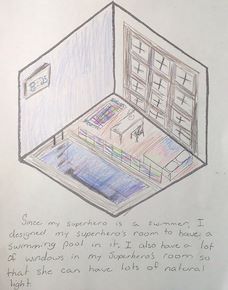 8:25
Since my superhero is a swimmer, I
designed my superhero's room to have a
swimming pool in it. I also have a lot
of windows in my superhero's room so
that she can have lots of natural
light.